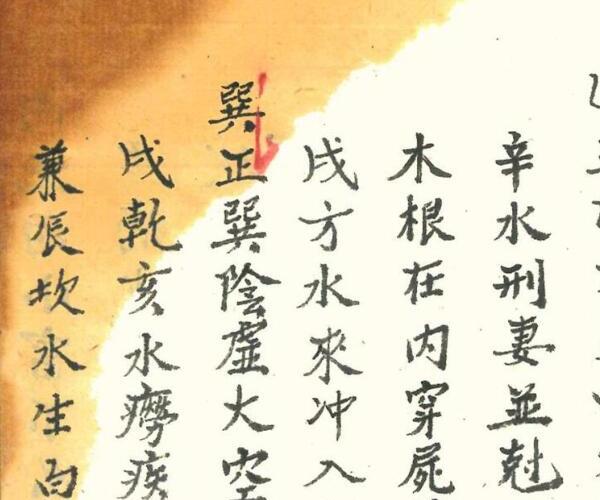 辛水刑妻並尅
木根在內穿屍
戌方水來冲入
巽正巽陰虛大空
戌乾亥水癆疾
兼辰坎水生白